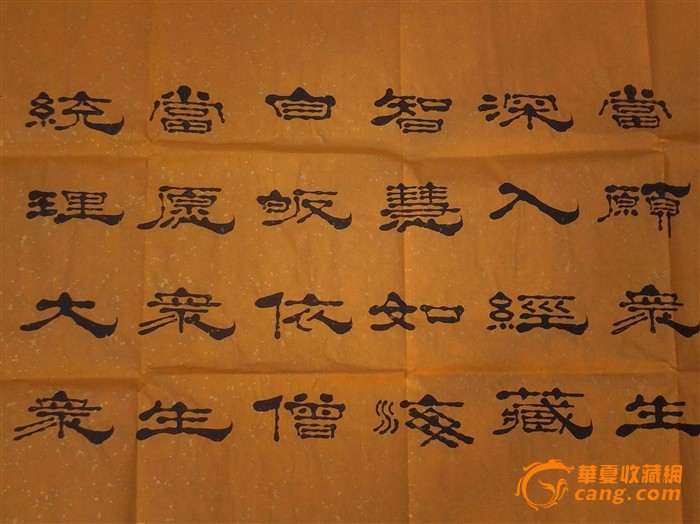 當願衆生
深入經藏
智慧如海
自皈依僧
當愿衆生
統理大衆
華夏收藏網
cang.com